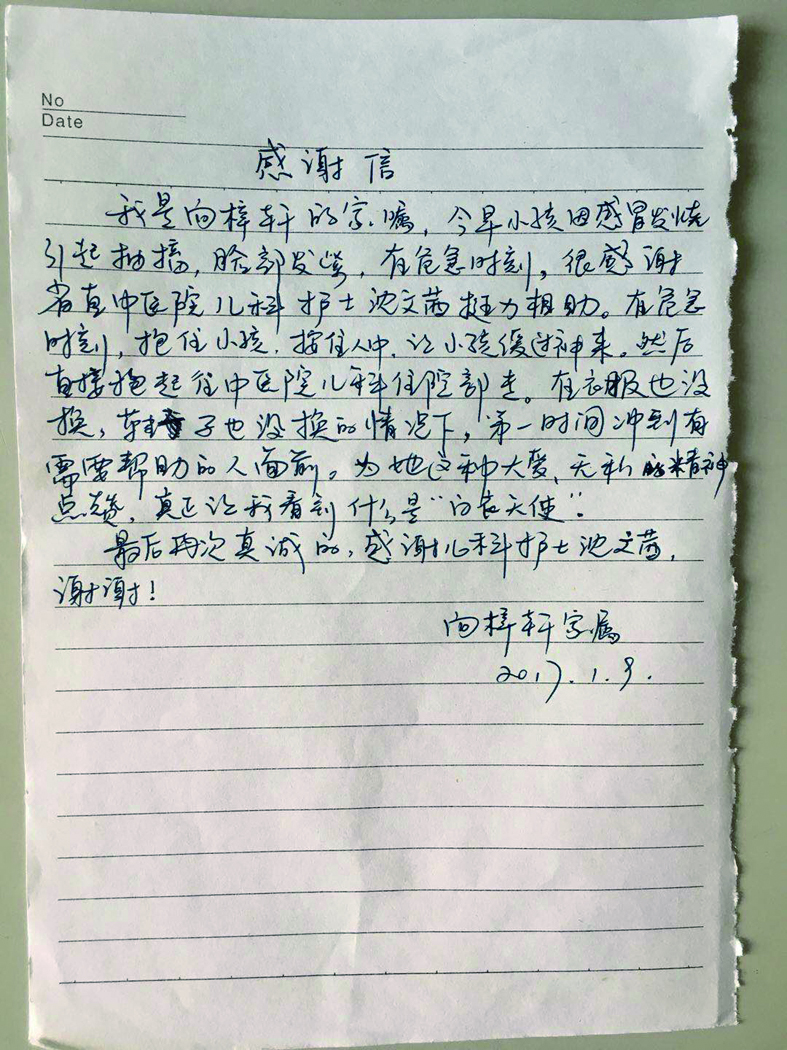 No
Date
感谢信
我是向梓轩的家嘱，今早小孩因感冒发烧
引起抽搐，脸部发紫，在危急时刻，很感谢
省直中医院儿科护士沈文茜挺力相助。在危急
时刻，抱住小孩，按住人中，让小孩缓过神来。然后
直接抱起往中医院儿科住院部走。在衣服也没
换，鞋子也没换的情况下，第一时间冲到有
需要帮助的人面前。为她这种大爱、无私的精神
点赞，真正让我看到什么是“白衣天使”.
最后再次真诚的，感谢儿科护士沈文茜，
谢谢！
向梓轩家属
2017.1.9.